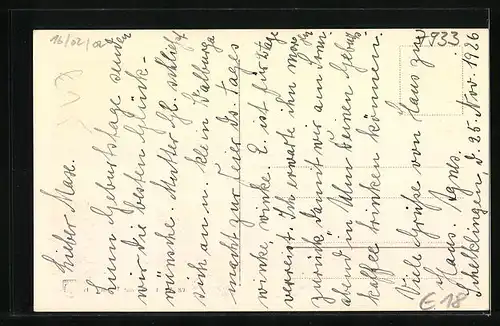 Lieber Max.
Zum Geburtstage senden
wir die besten Glück-
wünsche. Mutter Gr. schließt
sich an u. klein Walburga
macht zur Feier ds. Tages
winke, winke. E. ist für Tage
verreist. Ich erwarte ihn morg.
zurück damit wir am Sonn-
abend in Ulm Deinen Geburts-
kaffee trinken können.
Viele Grüße von Haus zu
Haus. Agnes.
Schelklingen, d. 25. Nov. 1926
1933
16/02/02
E 18